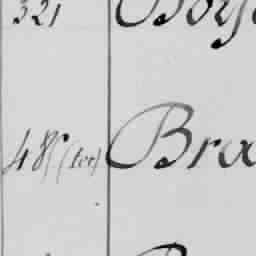 321 Boy
48 (ter) Bra